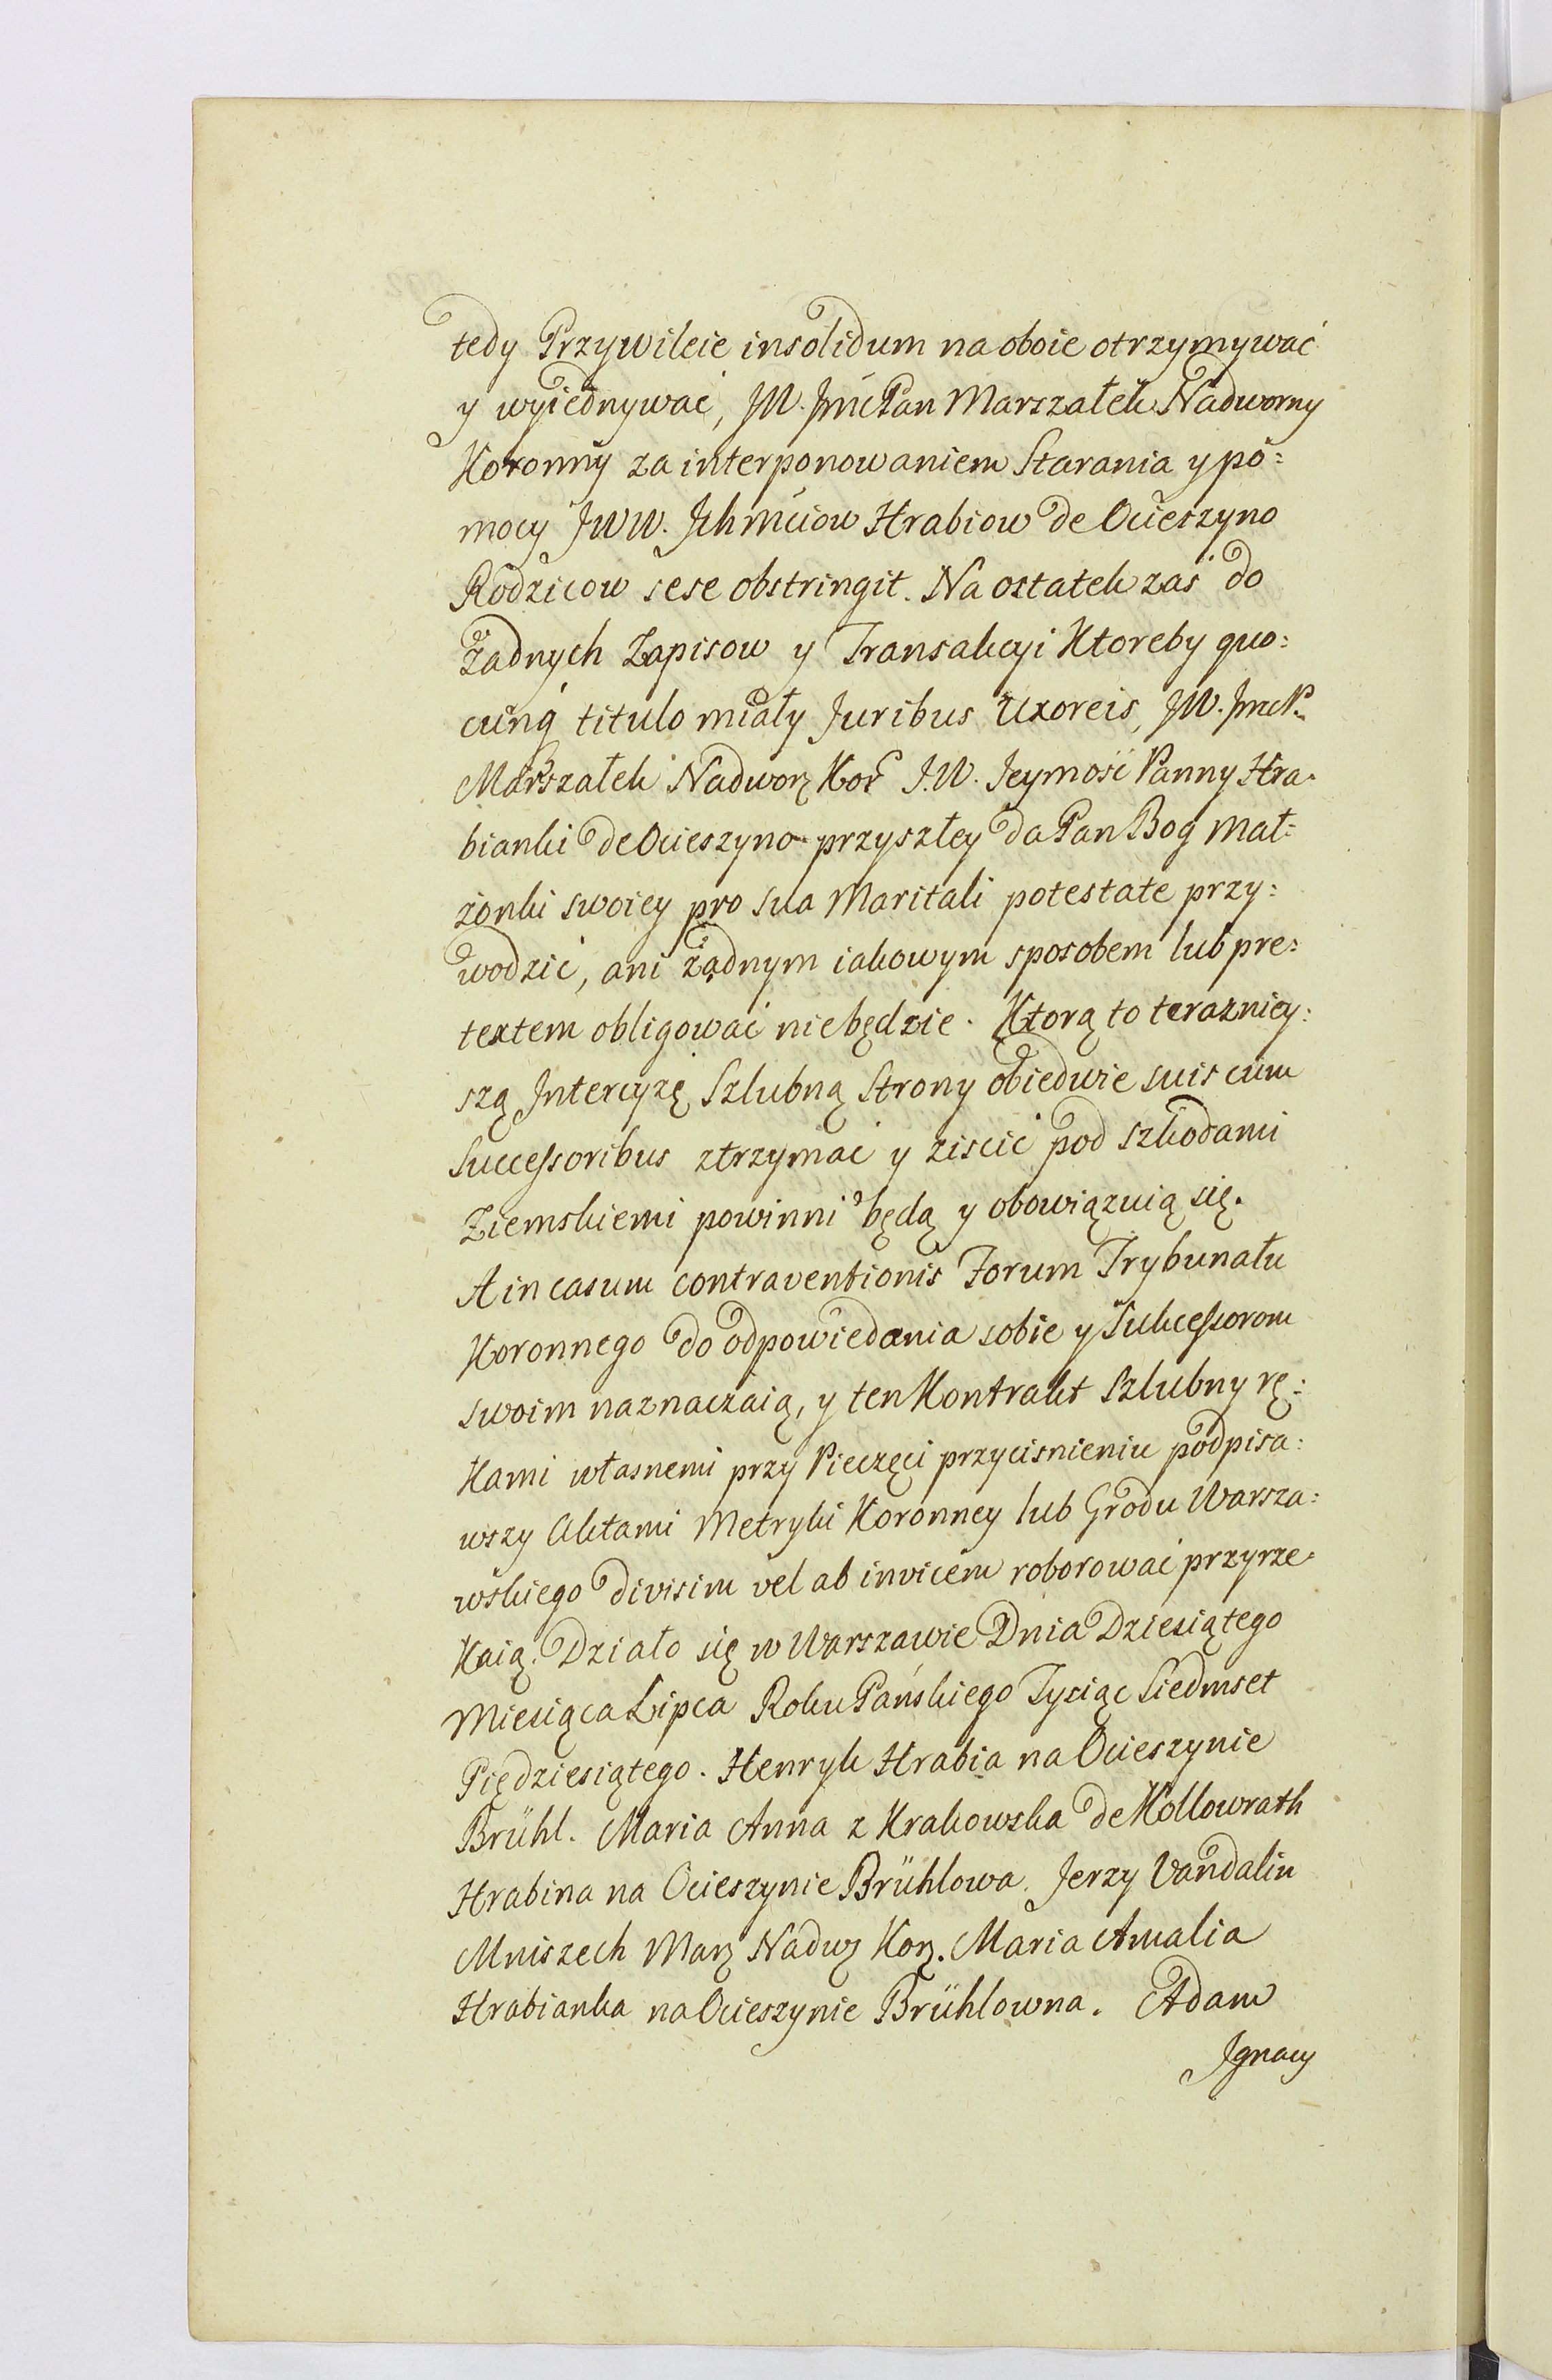 tedy Przywileie insolidum na oboie otrzymywać
y wyiednywać, JW. Jmć Pan Marszałek Nadworny
Koronny za interponowaniem Starania y po=
mocy JWW. Ichmciow Hrabiow de Ocieszyno
Rodzicow sese obstringit. Na ostatek zaś do
żadnych Zapisow y Transakcyi Ktoreby quo=
cunq titulo miały Juribus Uxoreis, JW. Jmć P.
Marszałek Nadwor Kor J.W. Jeymość Panny Hra=
bianki de Ocieszyno przyszłey da Pan Bog Mał=
żonki swoiey pro sua Maritali potestate przy=
wodzić, ani żądnym iakowym sposobem lub pre=
textem obligować niebędzie. Ktorą to teraźniey=
szą Intercyzę Szlubną Strony obiedwie suis cum
Successoribus ztrzymać y ziscić pod szkodami
Ziemskiemi powinni będą y obowiązuią się.
A in casum contraventionis Forum Trybunału
Koronnego do odpowiedania sobie y Sukcessorom
swoim naznaczaią, y ten Kontrakt Szlubny rę=
Kami własnemi przy Pieczęci przycisnieniu podpisa=
wszy Aktami Metryki Koronney lub Grodu Warsza=
wskiego divisim vel ab invicem roborować przyrze=
Kaią. Działo się w Warszawie Dnia Dziesiątego
Miesiąca Lipca Roku Pańskiego Tysiąc Siedmset
Piędziesiątego. Henryk Hrabia na Ocieszynie
Brühl. Maria Anna z Krakowska de Kollowrath
Hrabina na Ocieszynie Brühlowa. Jerzy Vandalin
Mniszech Mar Nadw Kor. Maria Amalia
Hrabianka na Ocieszynie Brühlowna. Adam
Ignacy